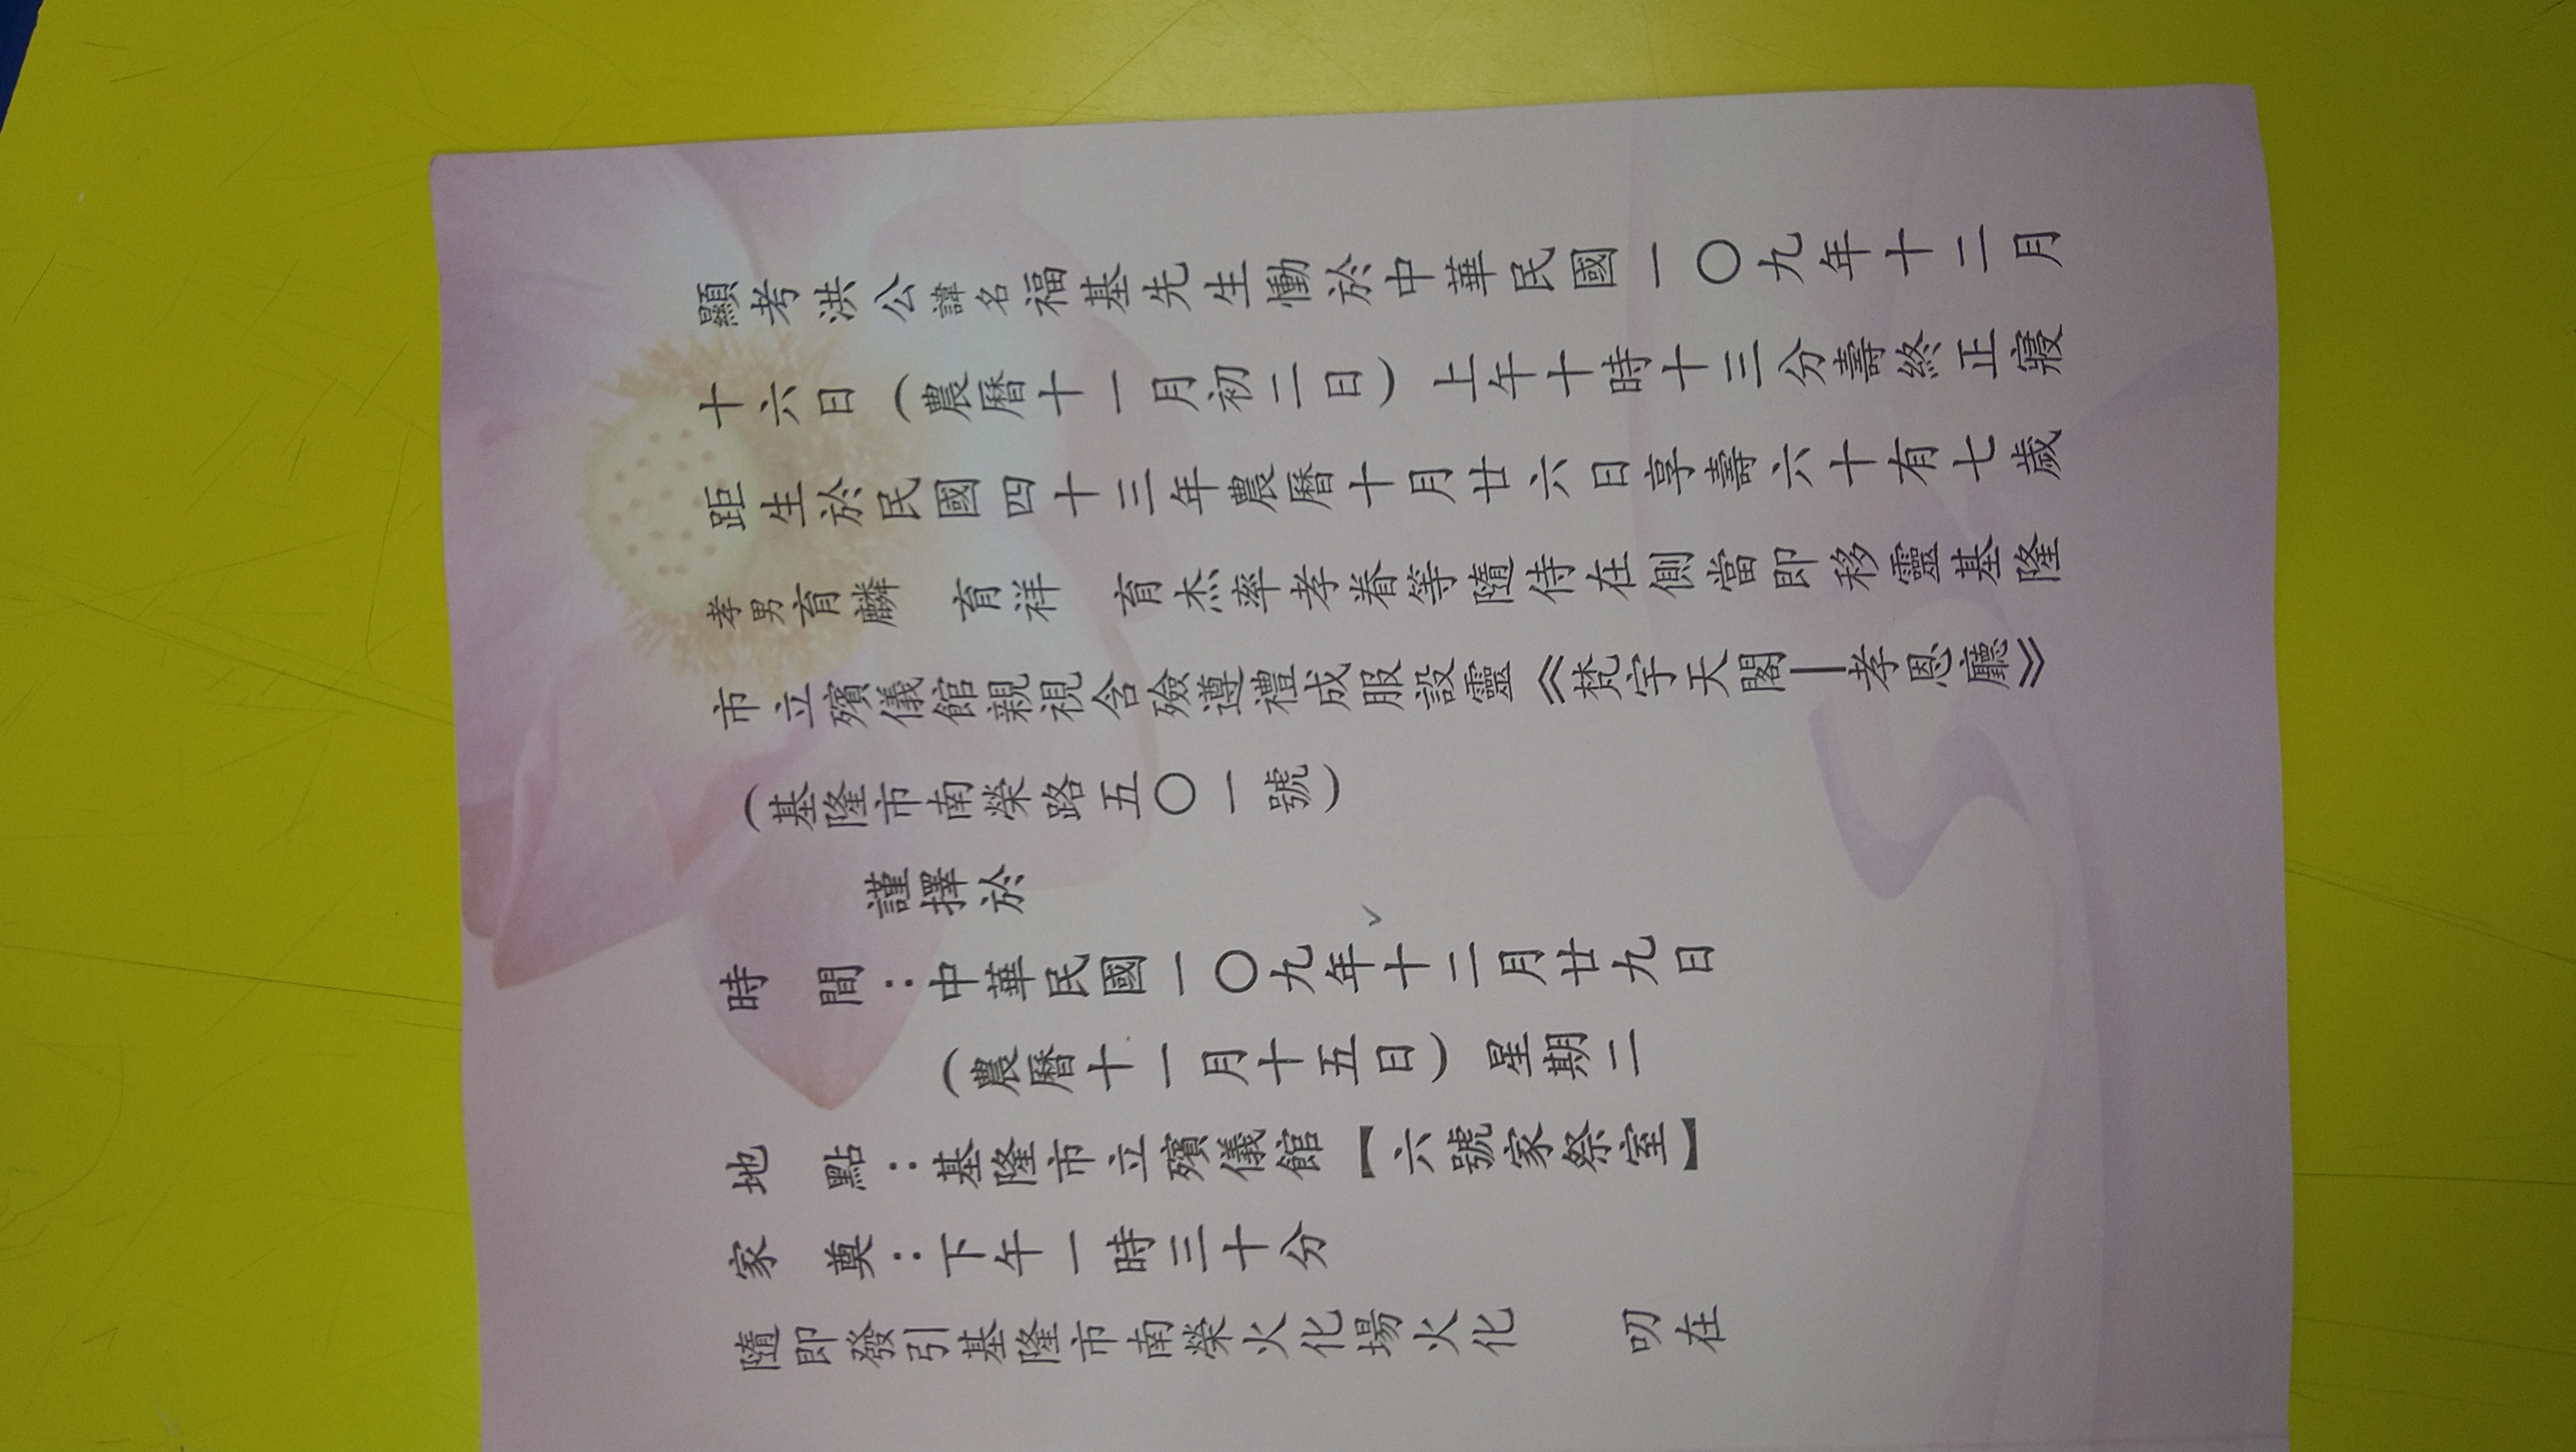 顯考洪公諱名福基先生慟於中華民國一〇九年十二月
十六日（農曆十一月初二日）上午十時十三分壽終正寢
距生於民國四十三年農曆十月廿六日享壽六十有七歲
孝男育麟　育祥　育杰率孝眷等隨侍在側當即移靈基隆
市立殯儀館親視含殮遵禮成服設靈《梵宇天閣—孝恩廳》
（基隆市南榮路五〇一號）
謹擇於
時　間：中華民國一〇九年十二月廿九日
（農曆十一月十五日）星期二
地　點：基隆市立殯儀館【六號家祭室】
家　奠：下午一時三十分
隨即發引基隆市南榮火化場火化　叨在